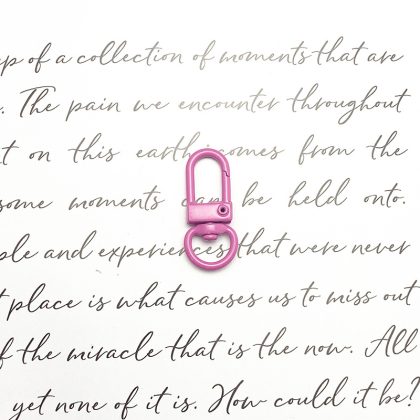 up of a collection of moments that are
. The pain we encounter throughout
t on this earth comes from the
some moments can be held onto.
ple and experiences that were never
t place is what causes us to miss out
f the miracle that is the now. All
yet none of it is. How could it be?